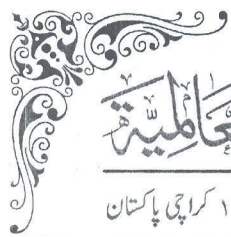 عَالَمِیَّۃ
۱ کراچی پاکستان